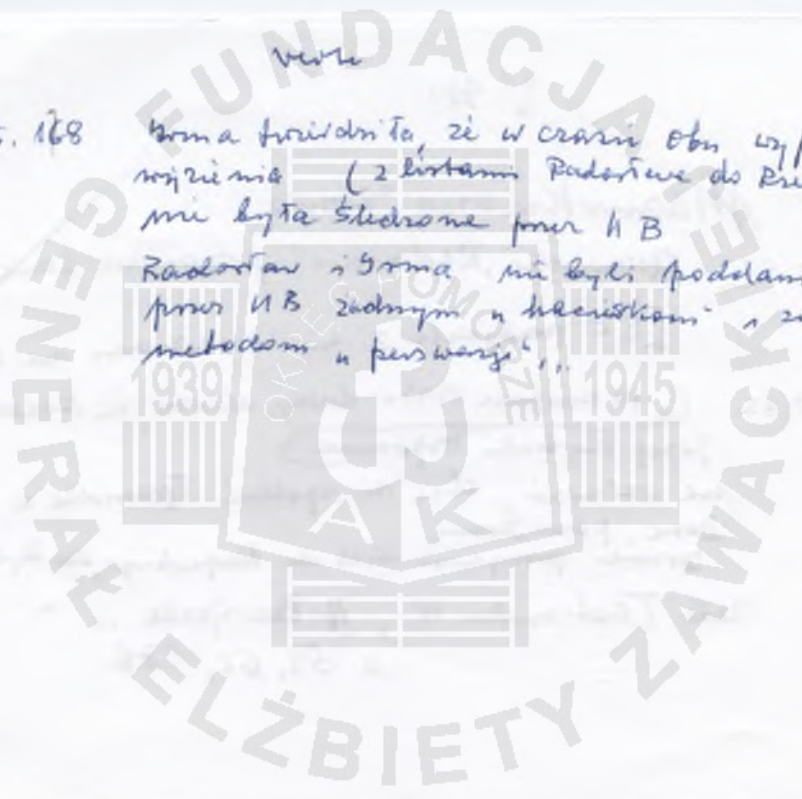 s. 168 Irma twierdziła, że w czasie obu
więzienia (z listami Radosława do
nie była śledzona przez UB
Radosław i Irma nie byli poddani
przez UB żadnym "naciskom" i
metodom "perswazji"...
FUNDACJA GENERAŁ ELŻBIETY ZAWACKIEJ
OKRĘG POMORZE
1939 1945
AK